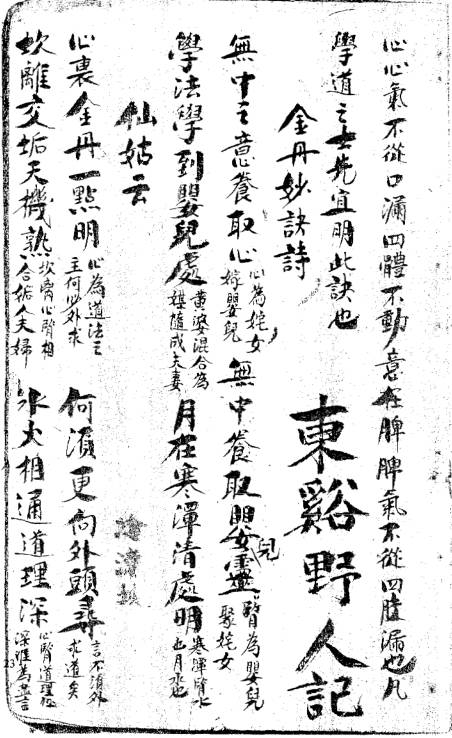 心心氣不從口漏四體不動意在脾脾氣不從四體漏也凡
學道之士先宜明此訣也
金丹妙訣詩 東谿野人記
無中之意養取心心為姹女嫁嬰兒 無中養取嬰兒靈腎為嬰兒娶姹女
學法學到嬰兒處黃婆混合為媒隨成夫妻 月在寒潭清處明寒潭腎水也月水也
仙姑云
心裏金丹一點明心為道法之主何必外求 何須更向外頭尋言不須外求道矣
坎離交垢天機熟坎腎心腎相合垢人夫婦 水火相通道理深心腎道理極深難為盡言
23